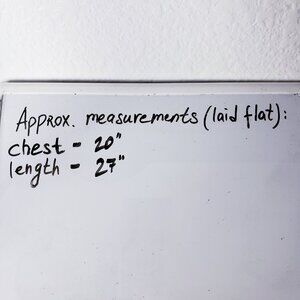 Approx. measurements (laid flat):
chest - 20"
length - 27"